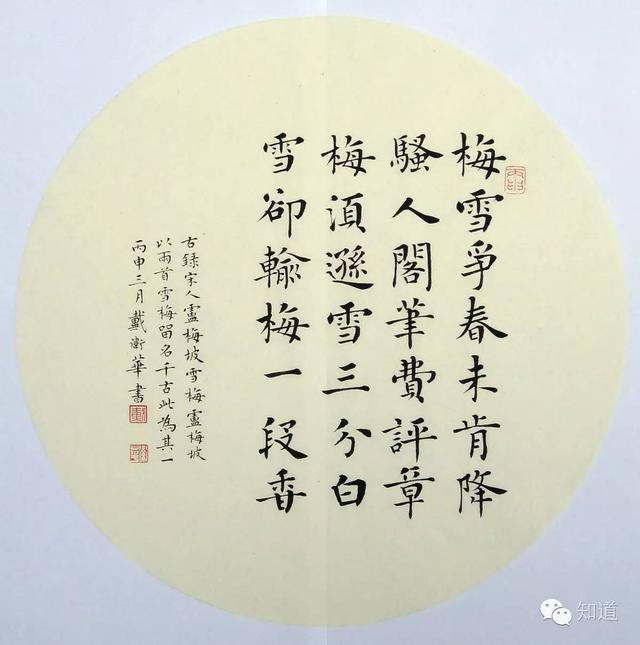 梅雪爭春未肯降
騷人閣筆費評章
梅須遜雪三分白
雪卻輸梅一段香
古錄宋人盧梅坡雪梅盧梅坡
以兩首雪梅留名千古此為其一
丙申三月戴衛華書
知道